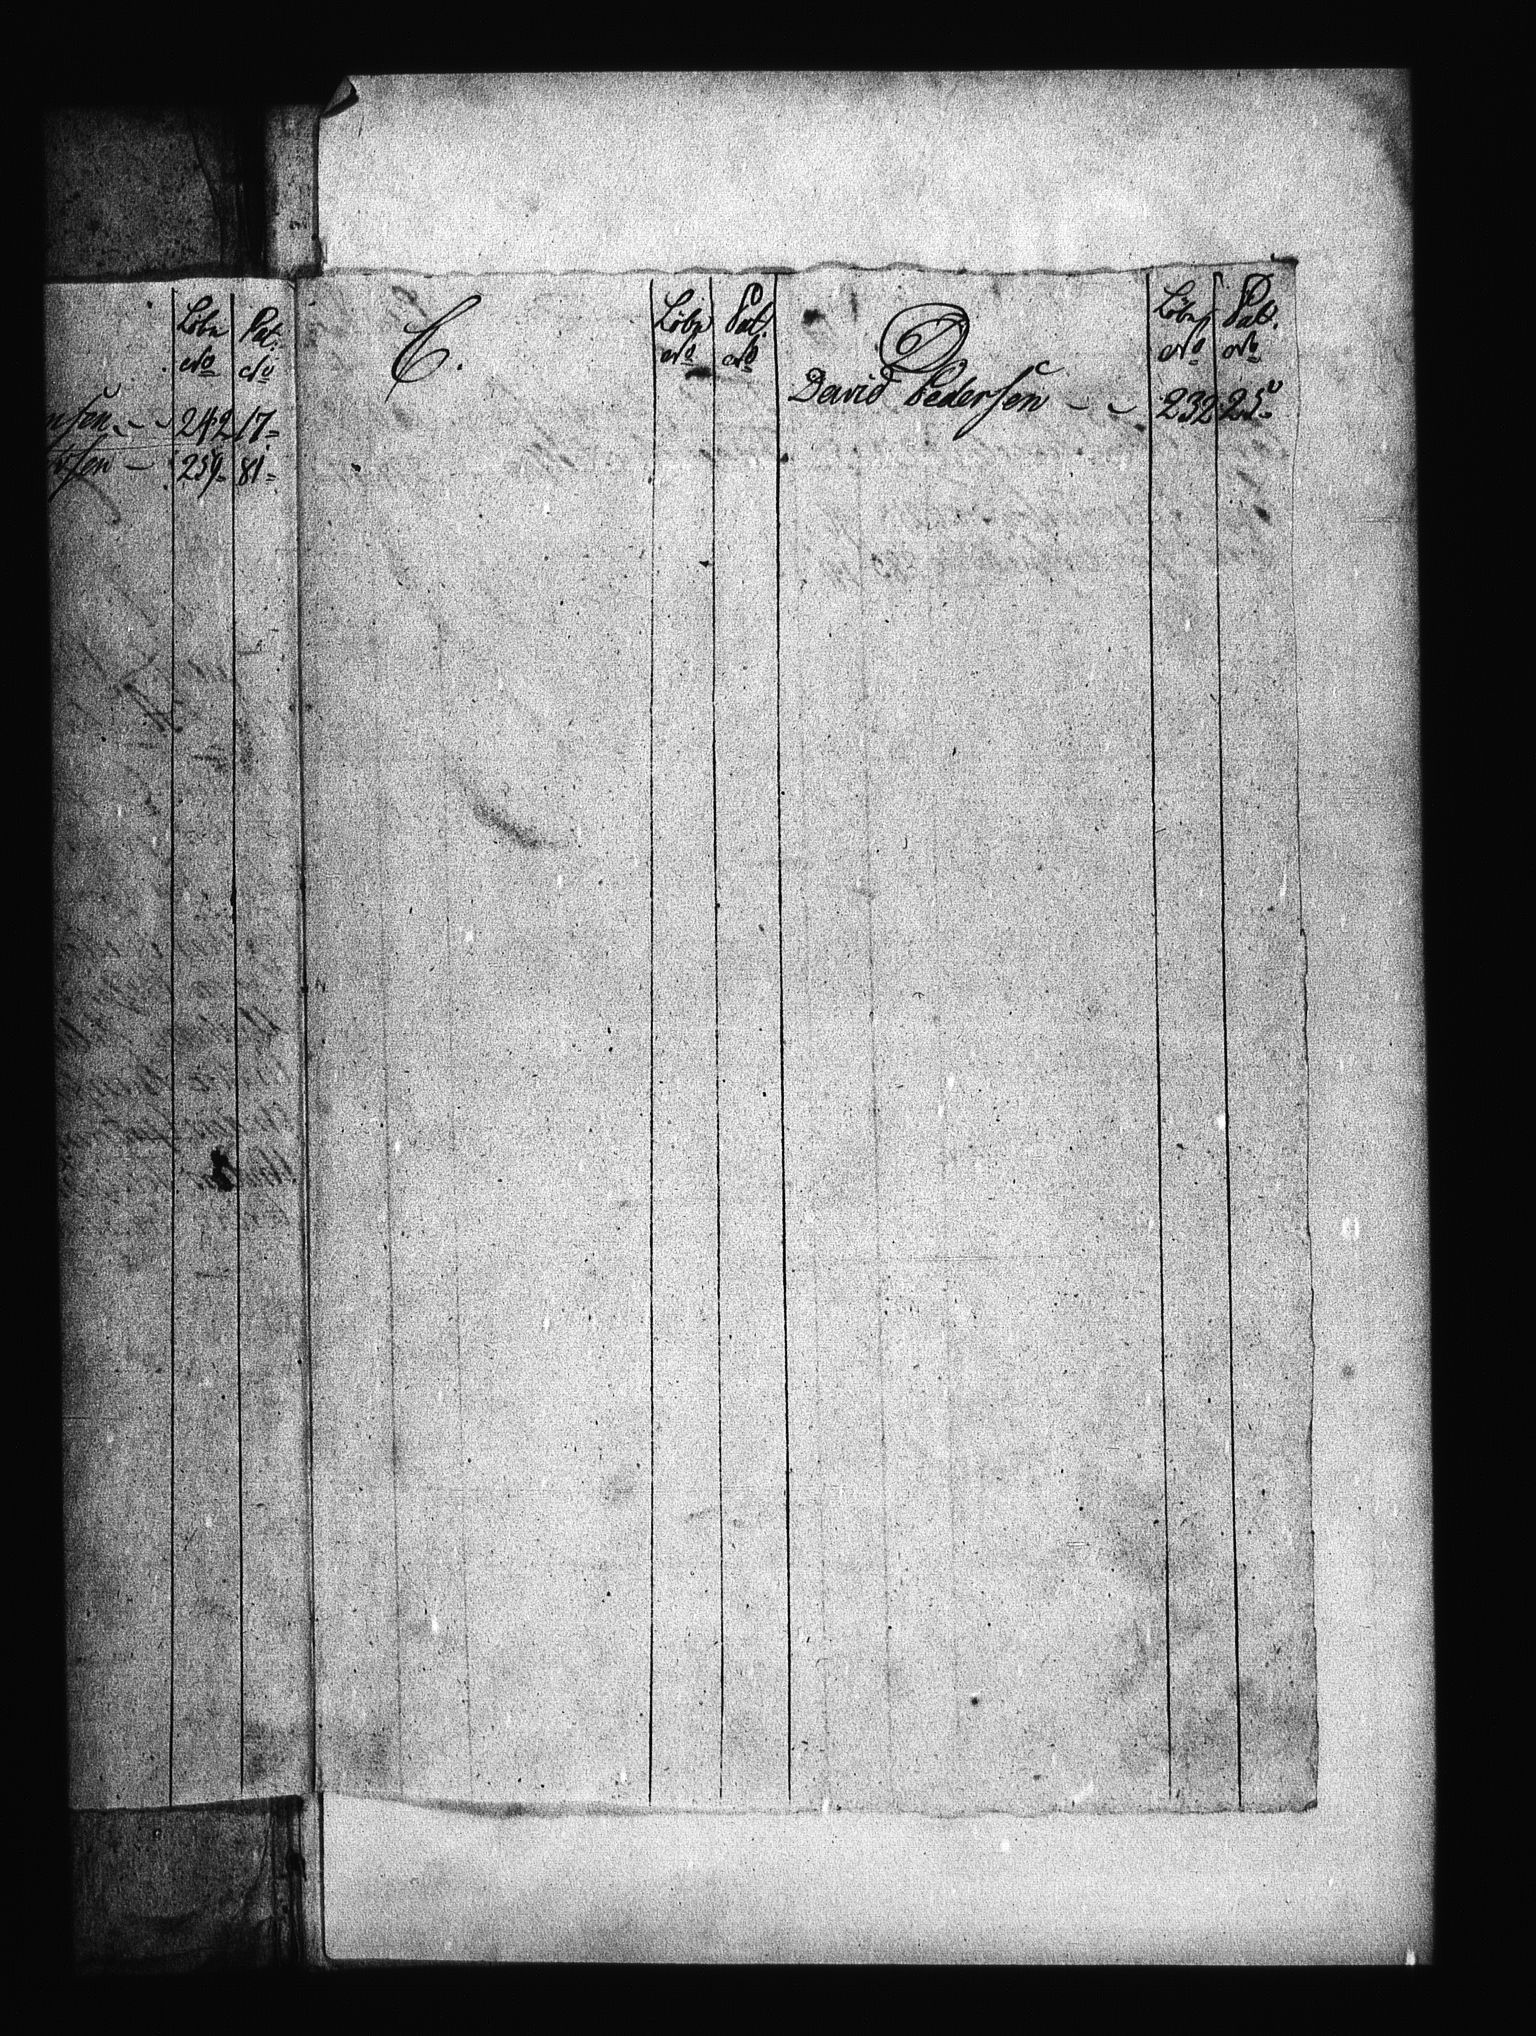 Löbe Pat:
No No
nsen 242 17
sen 259 81
C.
Löbe Pat.
No No
D
Löbe Pat.
No No
David Pedersen 232 25